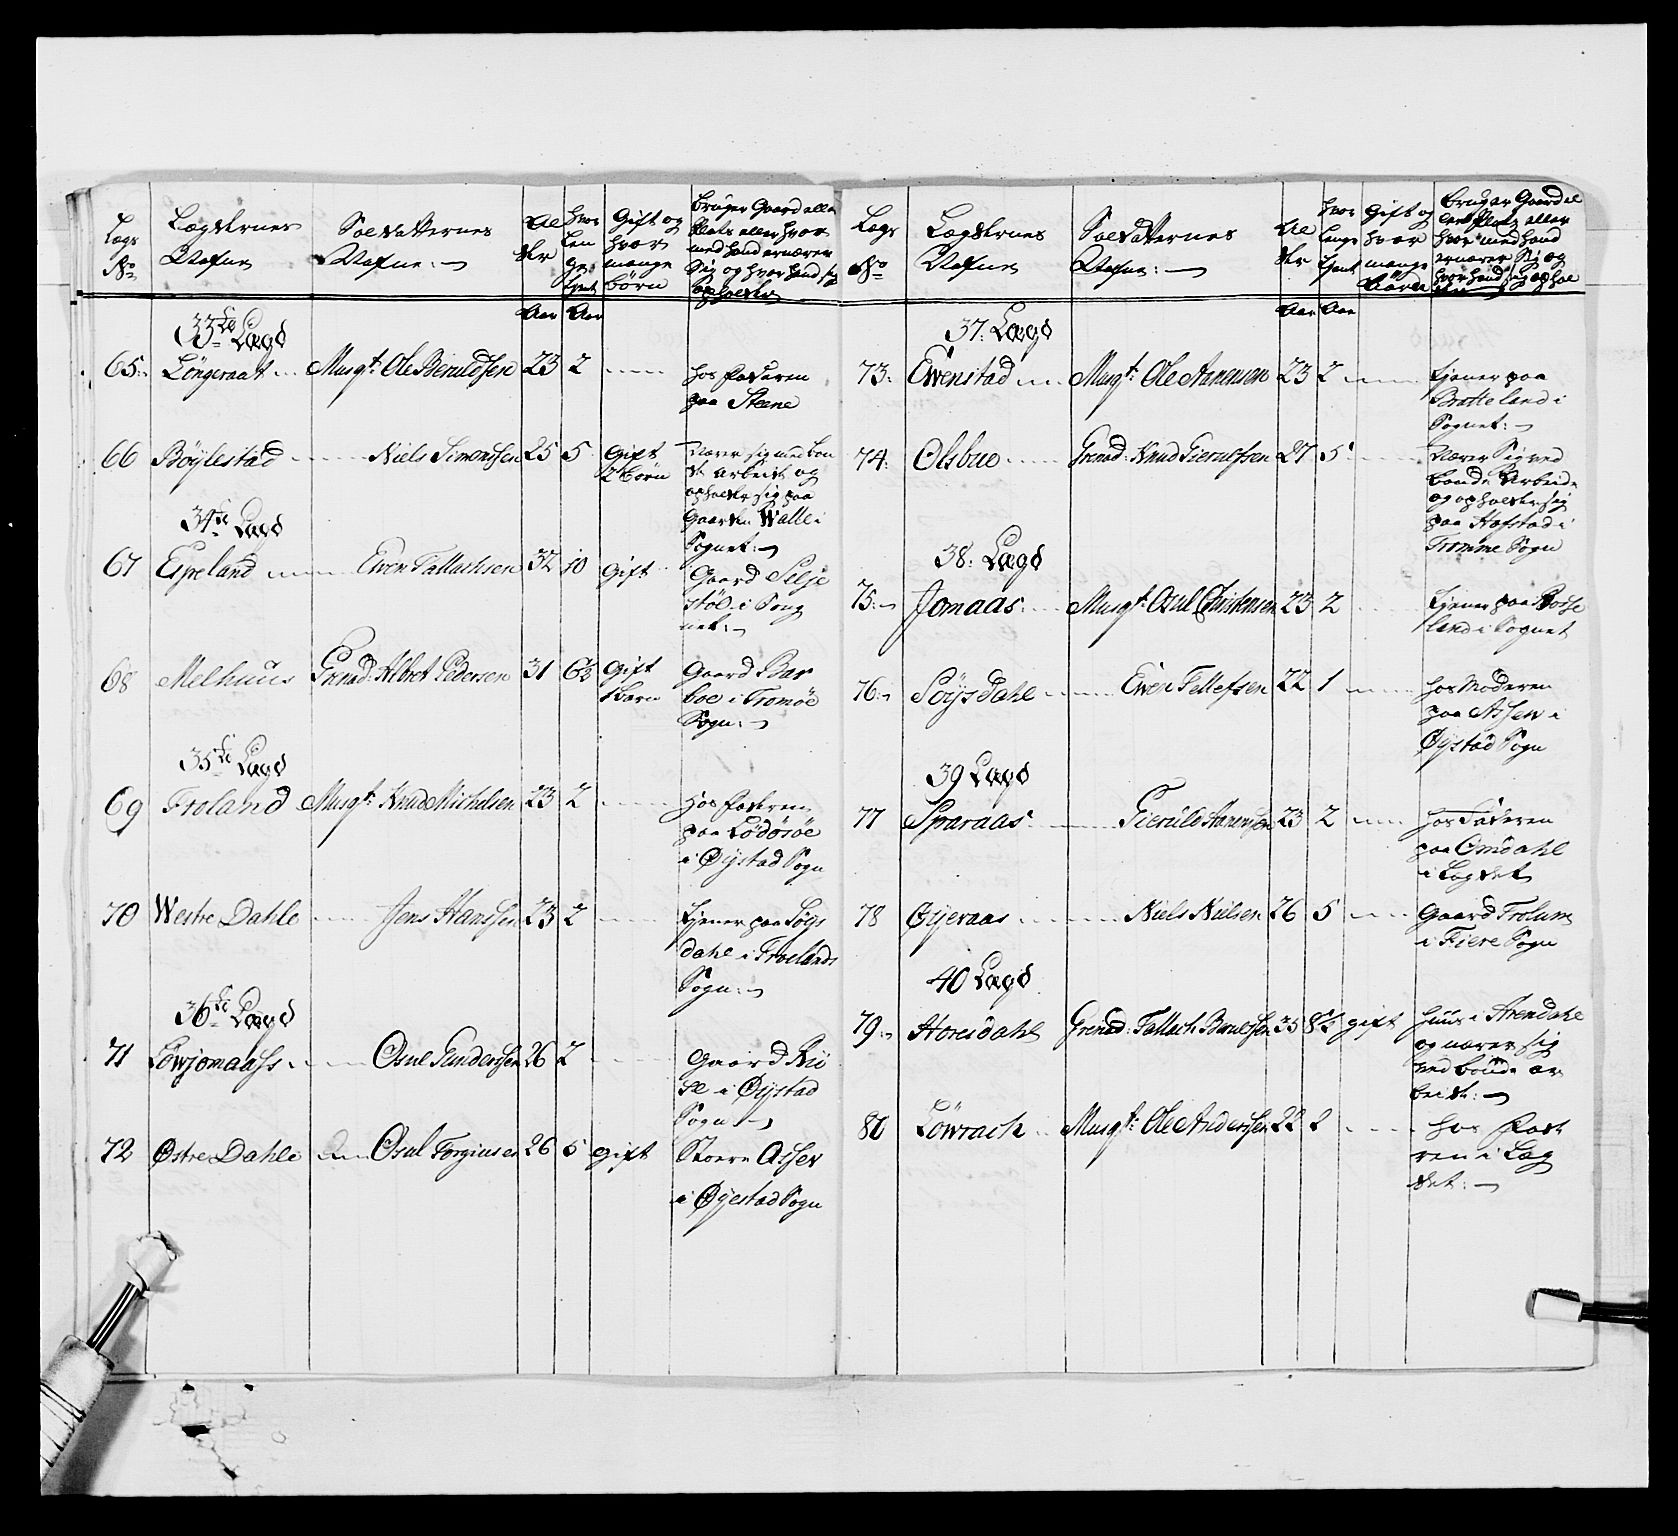 Lægs No
Lægdernes Nafne
Soldatternes Nafne:
Alder
Hvor længe tient
Gift og hvor mange børn
Bruger Gaard eller Plads eller hvor med hand ernærer Sig og hvor hand sig opholder
Aar Aar
33te Lægd
65: Løngeraat Musqt: Ole Beruldsen 23 2
hos faderen
paa Steene
66 Bøylestad Niels Simonsen 25 5 Gift
2 børn
Nærer sig med bon
de arbeide og
opholder sig paa
Gaarden Walle i
Sognet:
34te Lægd
67 Espeland Even Tallachsen 32 10 Gift
Gaard Selje
støl i Sog
net:
68 Melhuus Grenad: Albret Pedersen 31 6½ Gift
1 barn
Gaard Bar
boe i Tromøe
Sogn:
35te Lægd
69 Froland Musqt: Knud Michelsen 23 2
Hos faderen
paa Lødøsøe
i Øystad Sogn
70 Westre Dahle Jens Hansen 23 2
tjener paa Søgs
dahl i Froelands
Sogn:
36te Lægd
71 Løwjomaass Osul Gundersen 26 2
Gaard Rii
se i Øystad
Sogn
72 Østre Dahle Osul Torgiusen 26 5 gift
Stoere Asser
i Øyestad Sogn
Lægs No
Lægdernes Nafne
Soldatternes Nafne:
Alder
Hvor længe tient
Gift og hvor mange Børn
Bruger Gaard eller Plads eller hvor med hand ernærer Sig og hvor hand sig ophol
der
Aar Aar
37: Lægd
73: Ewenstad Musqt: Ole Aanensen 23 2
tjener paa
Bratteland i
Sognet:
74: Olsbue Grenad: Knud Gierulfsen 27 5
Nærer Sig ved
bonde Arbeide
og opholder sig
paa Hofstad i
Tromme Sogn
38: Lægd
75: Jomaas Musqt: Osul Christensen 23 2
tjener paa Bosse
land i Sognet
76: Søÿsdahl Even Tellefsen 22 1
hos Moderen
paa Asser i
Øystad Sogn
39 Lægd
77 Sparaas Gierul Aanensen 23 2
hos Faderen
paa Omdahl
i Lægdet
78 Øyeraas Niels Nielsen 26 5
Gaard Frolum
i Fiere Sogn
40 Lægd
79: Horesdahl Grenad: Tallach Benulsen 35 8½ gift
Huus i Arendahl
og nærer sig
ved bonde ar
beide:
80 Løwrach Musqt: Ole Andersen 22 2
hos fade
ren i Læg
det: